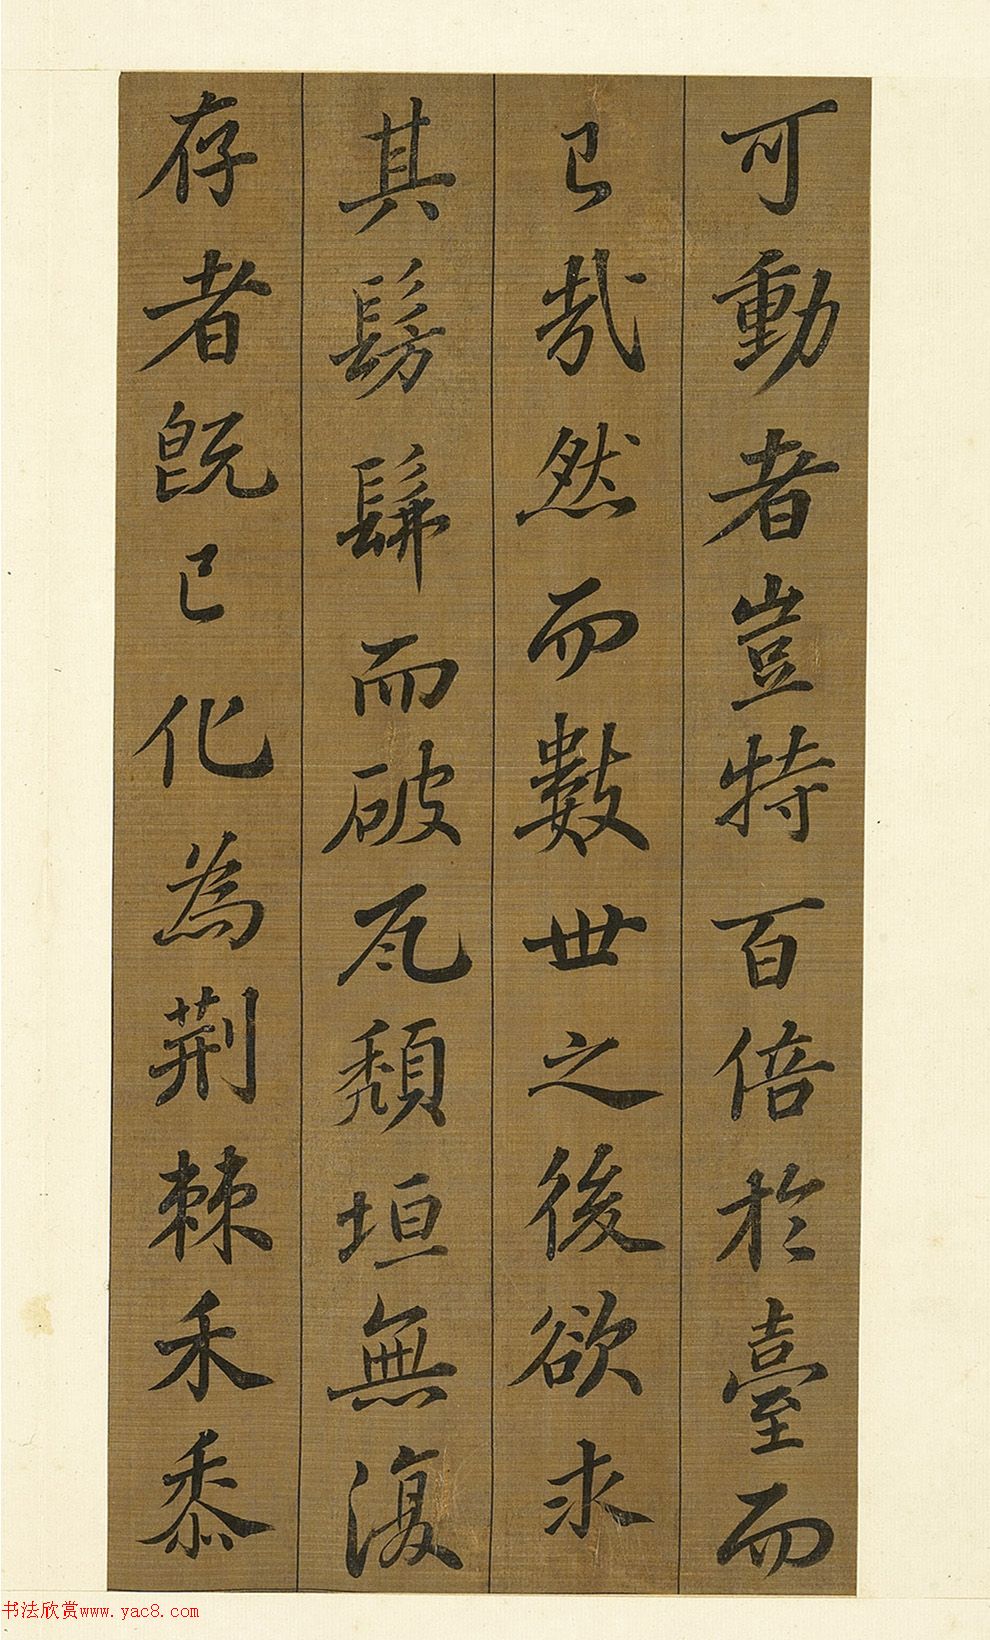 可動者豈特百倍於臺而
已哉然而數世之後欲求
其髣髴而破瓦頹垣無復
存者既已化為荆棘禾黍
书法欣赏www.yac8.com